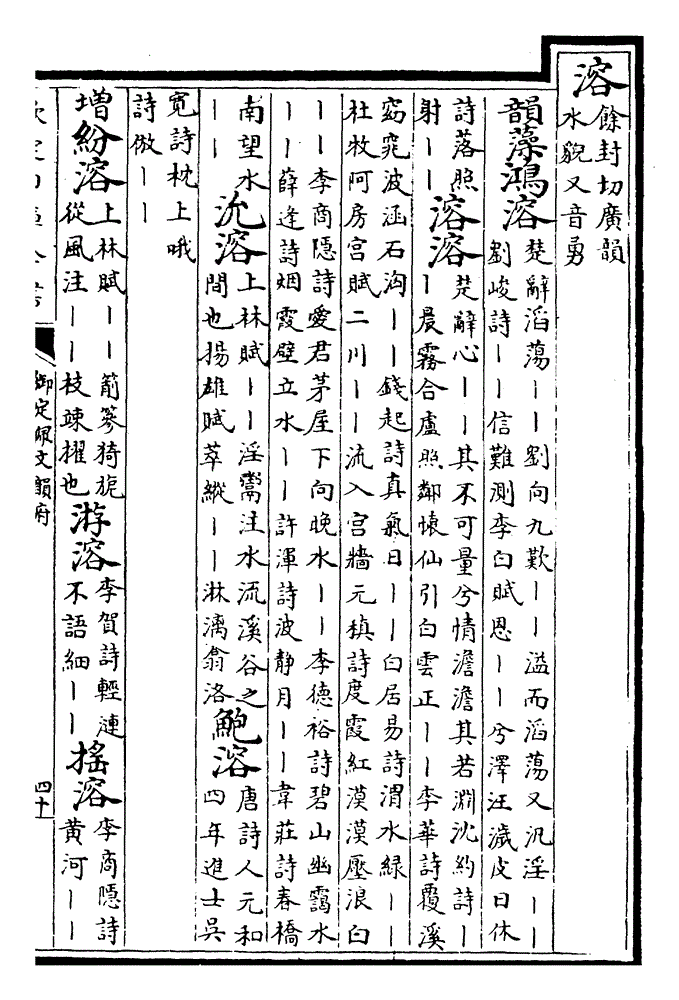 溶
餘封切廣韻
水貌又音勇
韻藻鴻溶
楚辭滔蕩丨丨劉向九歎丨丨溢而滔蕩又汎淫丨丨
劉峻詩丨丨信難測李白賦恩丨丨兮澤汪濊皮日休
詩落照
射丨丨
溶溶
楚辭心丨丨其不可量兮情澹澹其若淵沈約詩丨
丨晨霧合盧照鄰懐仙引白雲正丨丨李華詩覆溪
窈窕波涵石洶丨丨錢起詩真氣日丨丨白居易詩渭水緑丨丨
杜牧阿房宮賦二川丨丨流入宮牆元稹詩度霞紅漠漠壓浪白
丨丨李商隱詩愛君茅屋下向晚水丨丨李德裕詩碧山幽靄水
丨丨薛逢詩烟霞壁立水丨丨許渾詩波靜月丨丨韋莊詩春橋
南望水
丨丨
沇溶
上林賦丨丨淫鬻注水流溪谷之
間也揚雄賦萃縱丨丨淋漓翕洛
鮑溶
唐詩人元和
四年進士吳
寛詩枕上哦
詩倣丨丨
増紛溶
上林賦丨丨箾蔘猗旎
從風注丨丨枝竦擢也
游溶
李賀詩輕漣
不語細丨丨
搖溶
李商隱詩
黄河丨丨
欽定四庫全書
御定佩文韻府
四十